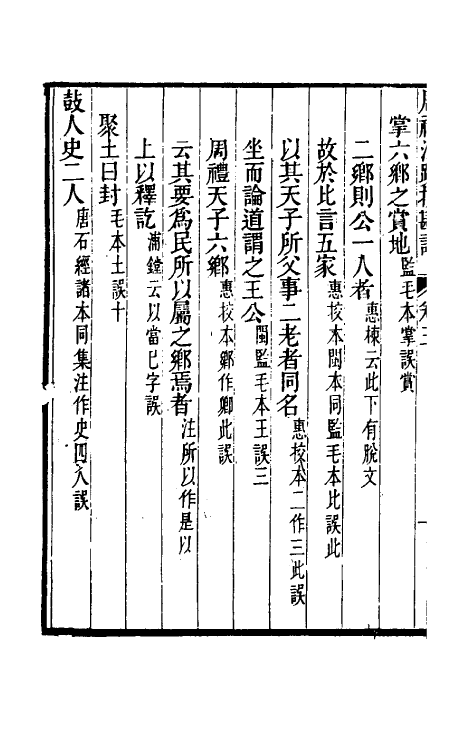 掌六鄉之賞地監毛本掌誤賞
二鄉則公一人者惠棟云此下有脫文
故於比言五家惠校本閩本同監毛本比誤此
以其天子所父事二老者同名惠校本二作三此誤
坐而論道謂之王公閩監毛本王誤三
周禮天子六鄉惠校本鄉作卿此誤
云其要爲民所以屬之鄉焉者注所以作是以
上以釋訖浦鏜云以當巳字誤
聚土曰封毛本土誤十
鼓人史二人唐石經諸本同集注作史四人誤